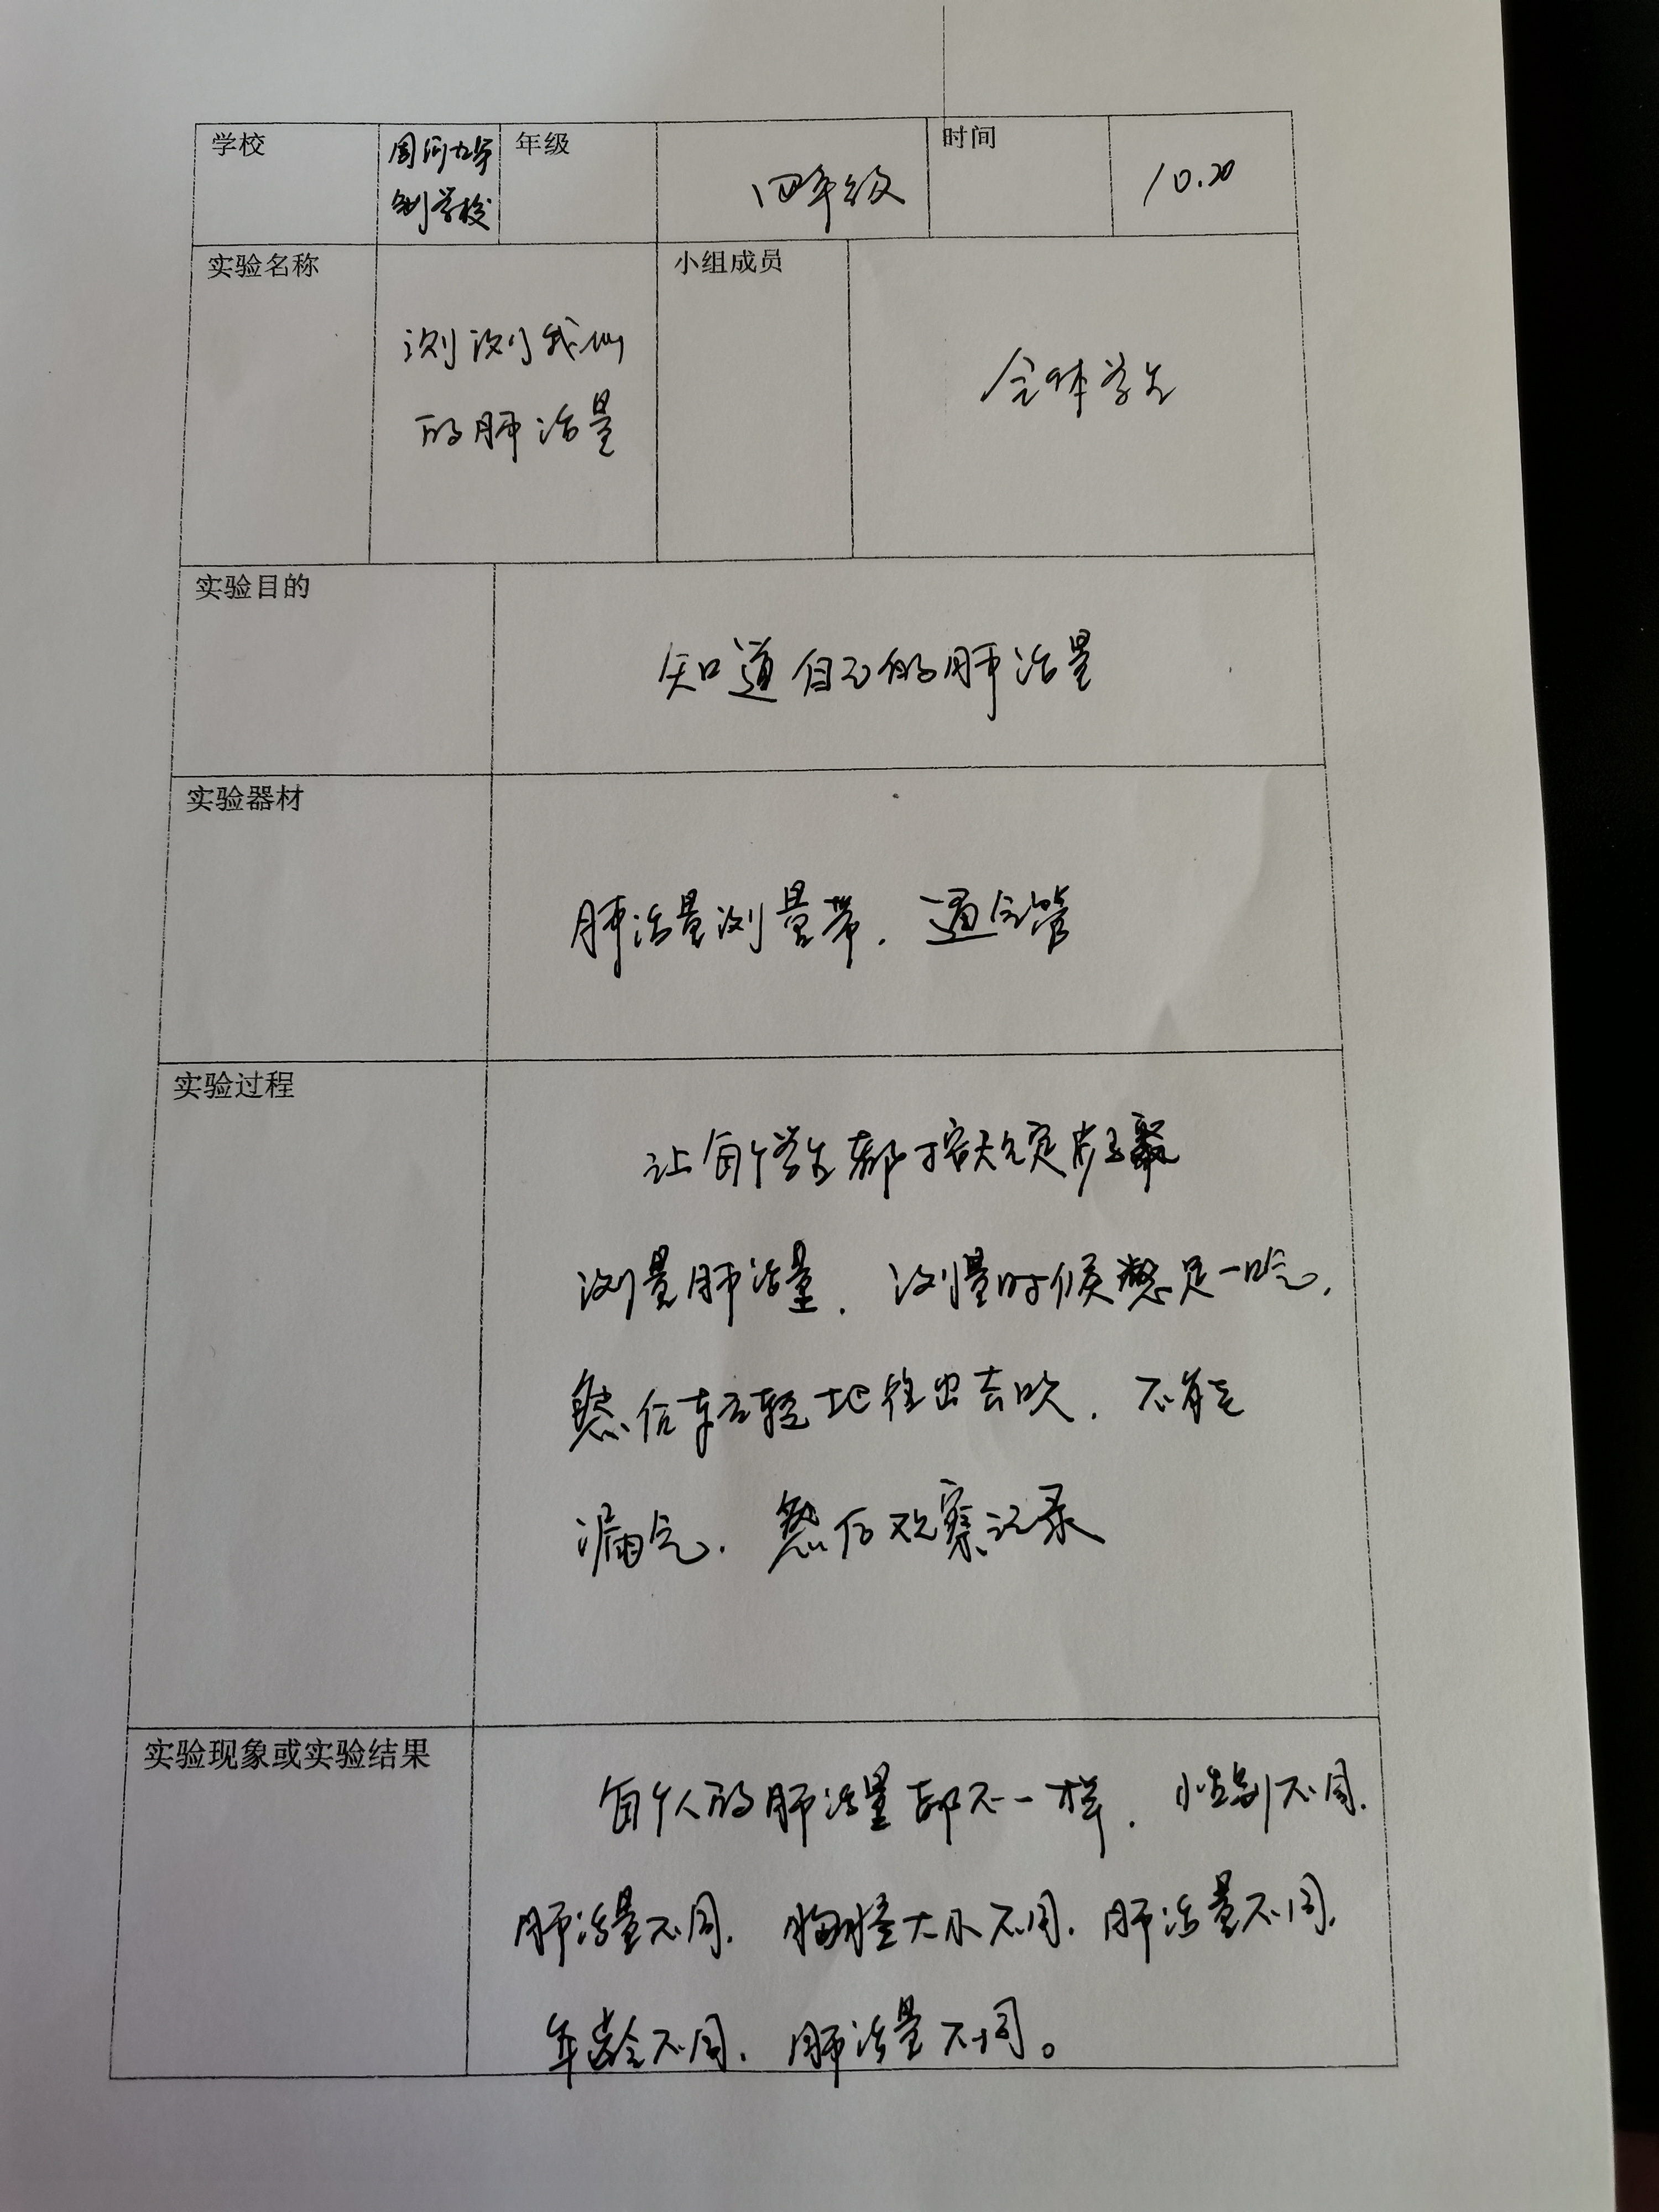 学校
周河九年
制学校
年级
四年级
时间
10.20
实验名称
测测我们
的肺活量
小组成员
全体学生
实验目的
知道自己的肺活量
实验器材
肺活量测量带，通气管
实验过程
让每个学生都按规定步骤
测量肺活量，测量时候憋足一口气，
然后轻轻地往出去吹，不能
漏气，然后观察记录
实验现象或实验结果
每个人的肺活量都不一样，性别不同，
肺活量不同，胸腔大小不同，肺活量不同，
年龄不同，肺活量不同。